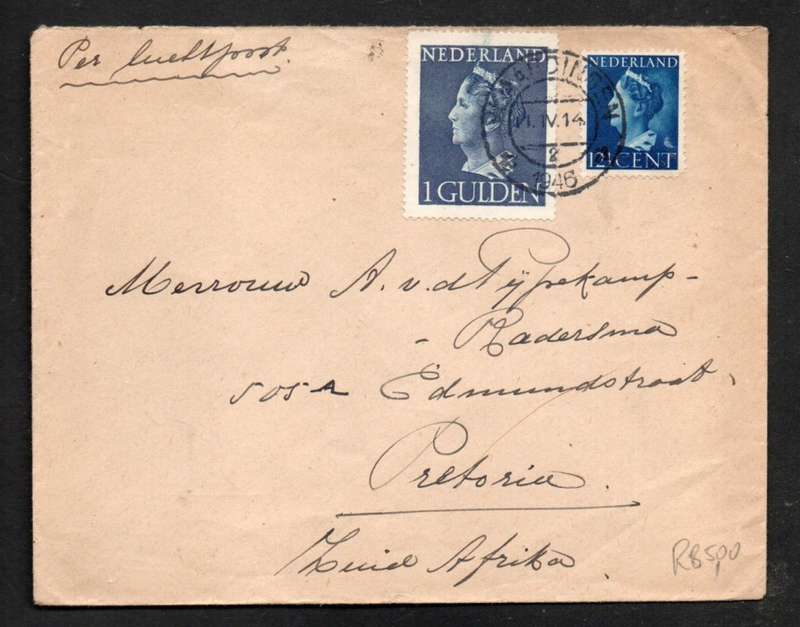 Per luchtpost.
NEDERLAND
1 GULDEN
NEDERLAND
12½ CENT
VLAARDINGEN
IV.14
2
1946
Mevrouw A. v. d.
Radersma
505 A Edmundstraat,
Pretoria.
Zuid Afrika
R8500